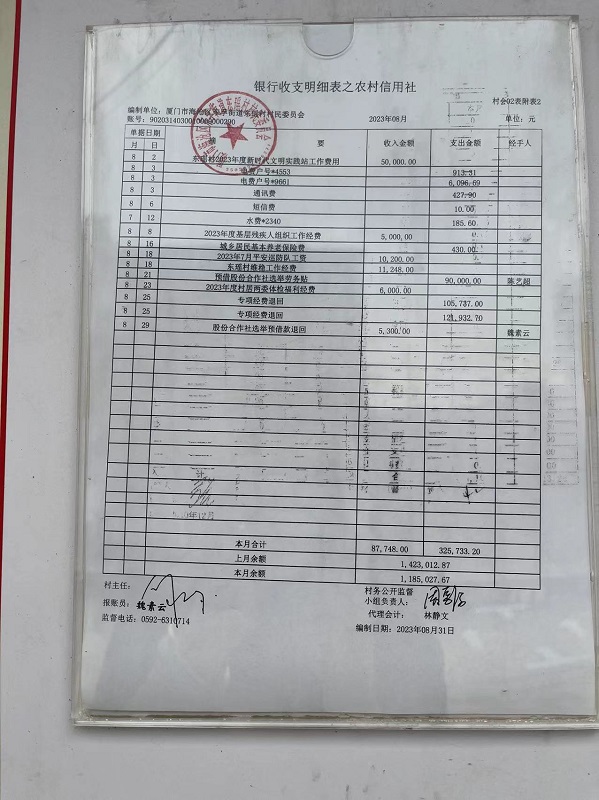 银行收支明细表之农村信用社
村会02表附表2
编制单位：厦门市海 村村民委员会
账号： 2023年08月 单位：元
单据日期 摘 要 收入金额 支出金额 经手人
月 日
8 2 东瑶村2023年度新时代文明实践站工作费用 50,000.00
8 3 电费户号*4553 913.31
8 3 电费户号*9661 6,096.69
8 3 通讯费 427.90
8 6 短信费 10.00
7 12 水费*2340 185.60
8 8 2023年度基层残疾人组织工作经费 5,000.00
8 16 城乡居民基本养老保险费 430.00
8 18 2023年7月平安巡防队工资 10,200.00
8 18 东瑶村维稳工作经费 11,248.00
8 21 预借股份合作社选举劳务贴 90,000.00 陈艺超
8 23 2023年度村居两委体检福利经费 6,000.00
8 25 专项经费退回 105,737.00
8 25 专项经费退回 121,932.70
8 29 股份合作社选举预借款退回 5,300.00 魏素云
本月合计 87,748.00 325,733.20
上月余额 1,423,012.87
本月余额 1,185,027.67
村主任： 村务公开监督
小组负责人：
报账员：魏素云 代理会计： 林静文
监督电话：0592-6310714
编制日期：2023年08月31日